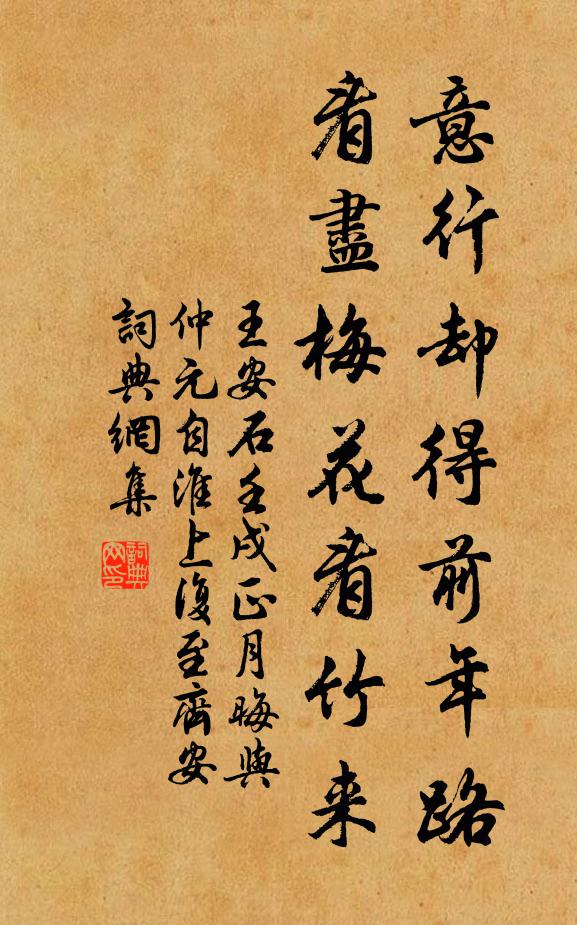 意行却得前年路
看盡梅花看竹来
王安石壬戌正月晦與
仲元自淮上復至齊安
詞典網集
詞典
网印